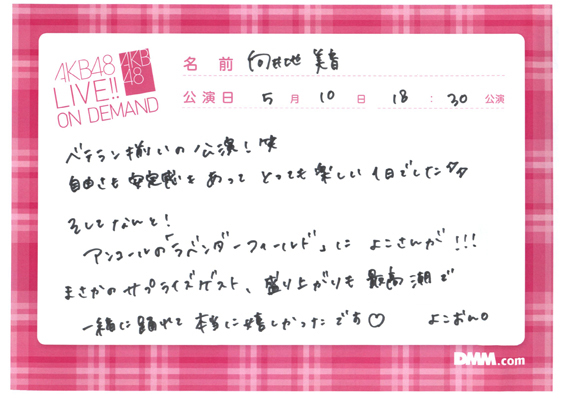 AKB48
LIVE!!
ON DEMAND
AKB
48
名前 向井地 美音
公演日 5月10日 18:30 公演
ベテラン揃いの公演!笑
自由さも安定感もあって とっても楽しい1日でした夕夕
そしてなんと!
アンコールの「ラベンダーフィールド」に よこさんが!!!
まさかのサプライズゲスト、盛り上がりも最高潮で
一緒に踊れて本当に嬉しかったです♡ よこおん。
DMM.com